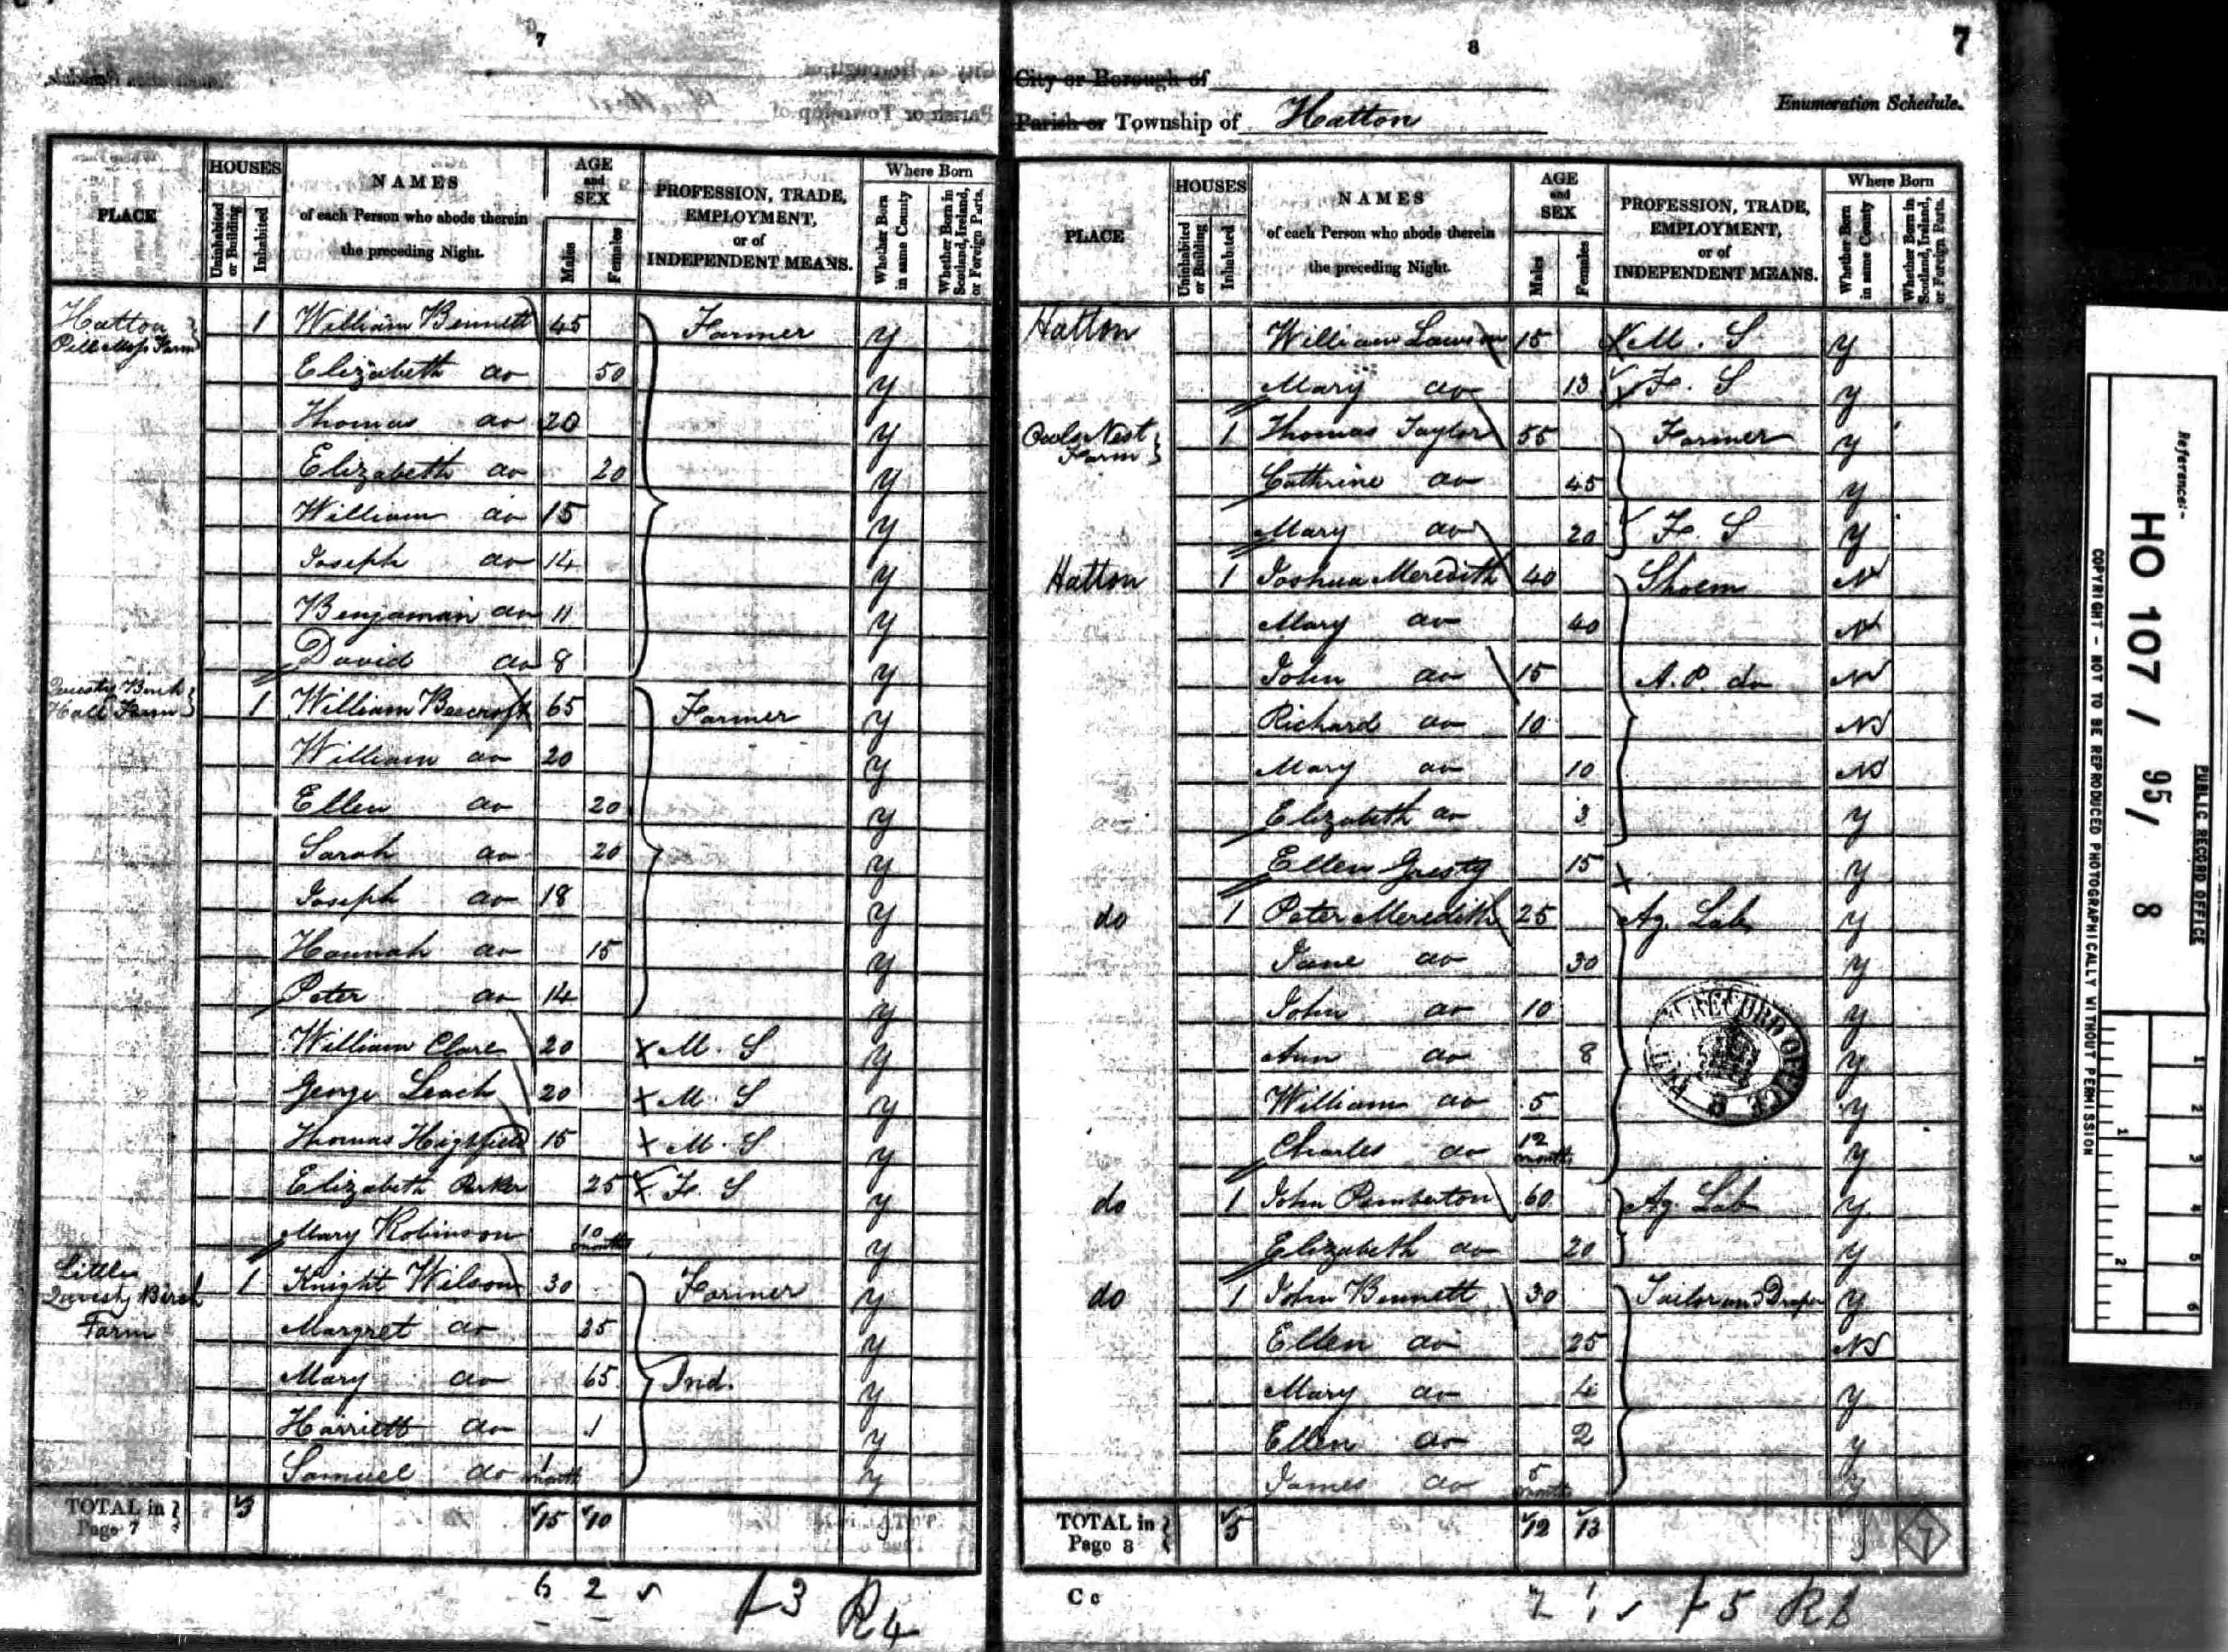 7
PLACE
HOUSES
Uninhabited or Building
Inhabited
NAMES
of each Person who abode therein
the preceding Night.
AGE
and
SEX
Males
Females
PROFESSION, TRADE,
EMPLOYMENT,
or of
INDEPENDENT MEANS.
Where Born
Whether Born in same County
Whether Born in Scotland, Ireland, or Foreign Parts.
Hatton 1 William Bennett 45 Farmer y
Farm
Elizabeth do 50 y
Thomas do 20 y
Elizabeth do 20 y
William do 15 y
Joseph do 14 y
Benjamin do 11 y
David do 8 y
Hall Farm 1 William Beecroft 65 Farmer y
William do 20 y
Ellen do 20 y
Sarah do 20 y
Joseph do 18 y
Hannah do 15 y
Peter do 14 y
William Clare 20 M. S y
George Leach 20 M. S y
Thomas Highfield 15 M. S y
Elizabeth Parker 25 F. S y
Mary Robinson 10 months y
Little
Birch 1 Knight Wilson 30 Farmer y
Farm Margret do 25 y
Mary do 65 Ind. y
Harriett do 1 y
Samuel do 1 month y
TOTAL in Page 7 3 15 10
6 2 3 R4
8
7
City or Borough of
Parish or Township of Hatton
Enumeration Schedule.
PLACE
HOUSES
Uninhabited or Building
Inhabited
NAMES
of each Person who abode therein
the preceding Night.
AGE
and
SEX
Males
Females
PROFESSION, TRADE,
EMPLOYMENT,
or of
INDEPENDENT MEANS.
Where Born
Whether Born in same County
Whether Born in Scotland, Ireland, or Foreign Parts.
Hatton William Lawson 15 M. S y
Mary do 13 F. S y
Owls Nest Farm 1 Thomas Taylor 55 Farmer y
Cathrine do 45 y
Mary do 20 F. S y
Hatton 1 Joshua Meredith 40 Shoem N
Mary do 40 N
John do 15 A. P. do N
Richard do 10 N
Mary do 10 N
Elizabeth do 3 y
Ellen Gresty 15 y
do 1 Peter Meredith 25 Ag. Lab y
Jane do 30 y
John do 10 y
Ann do 8 y
William do 5 y
Charles do 12 months y
do 1 John Pemberton 60 Ag. Lab y
Elizabeth do 20 y
do 1 John Bennett 30 Tailor and Draper y
Ellen do 25 N
Mary do 4 y
Ellen do 2 y
James do 5 months y
TOTAL in Page 8 5 12 13
7
C c
5
RECORD OFFICE
Reference:-
HO 107 / 95 / 8
PUBLIC RECORD OFFICE
COPYRIGHT - NOT TO BE REPRODUCED PHOTOGRAPHICALLY WITHOUT PERMISSION
1 2 3 4 5 6
1 2